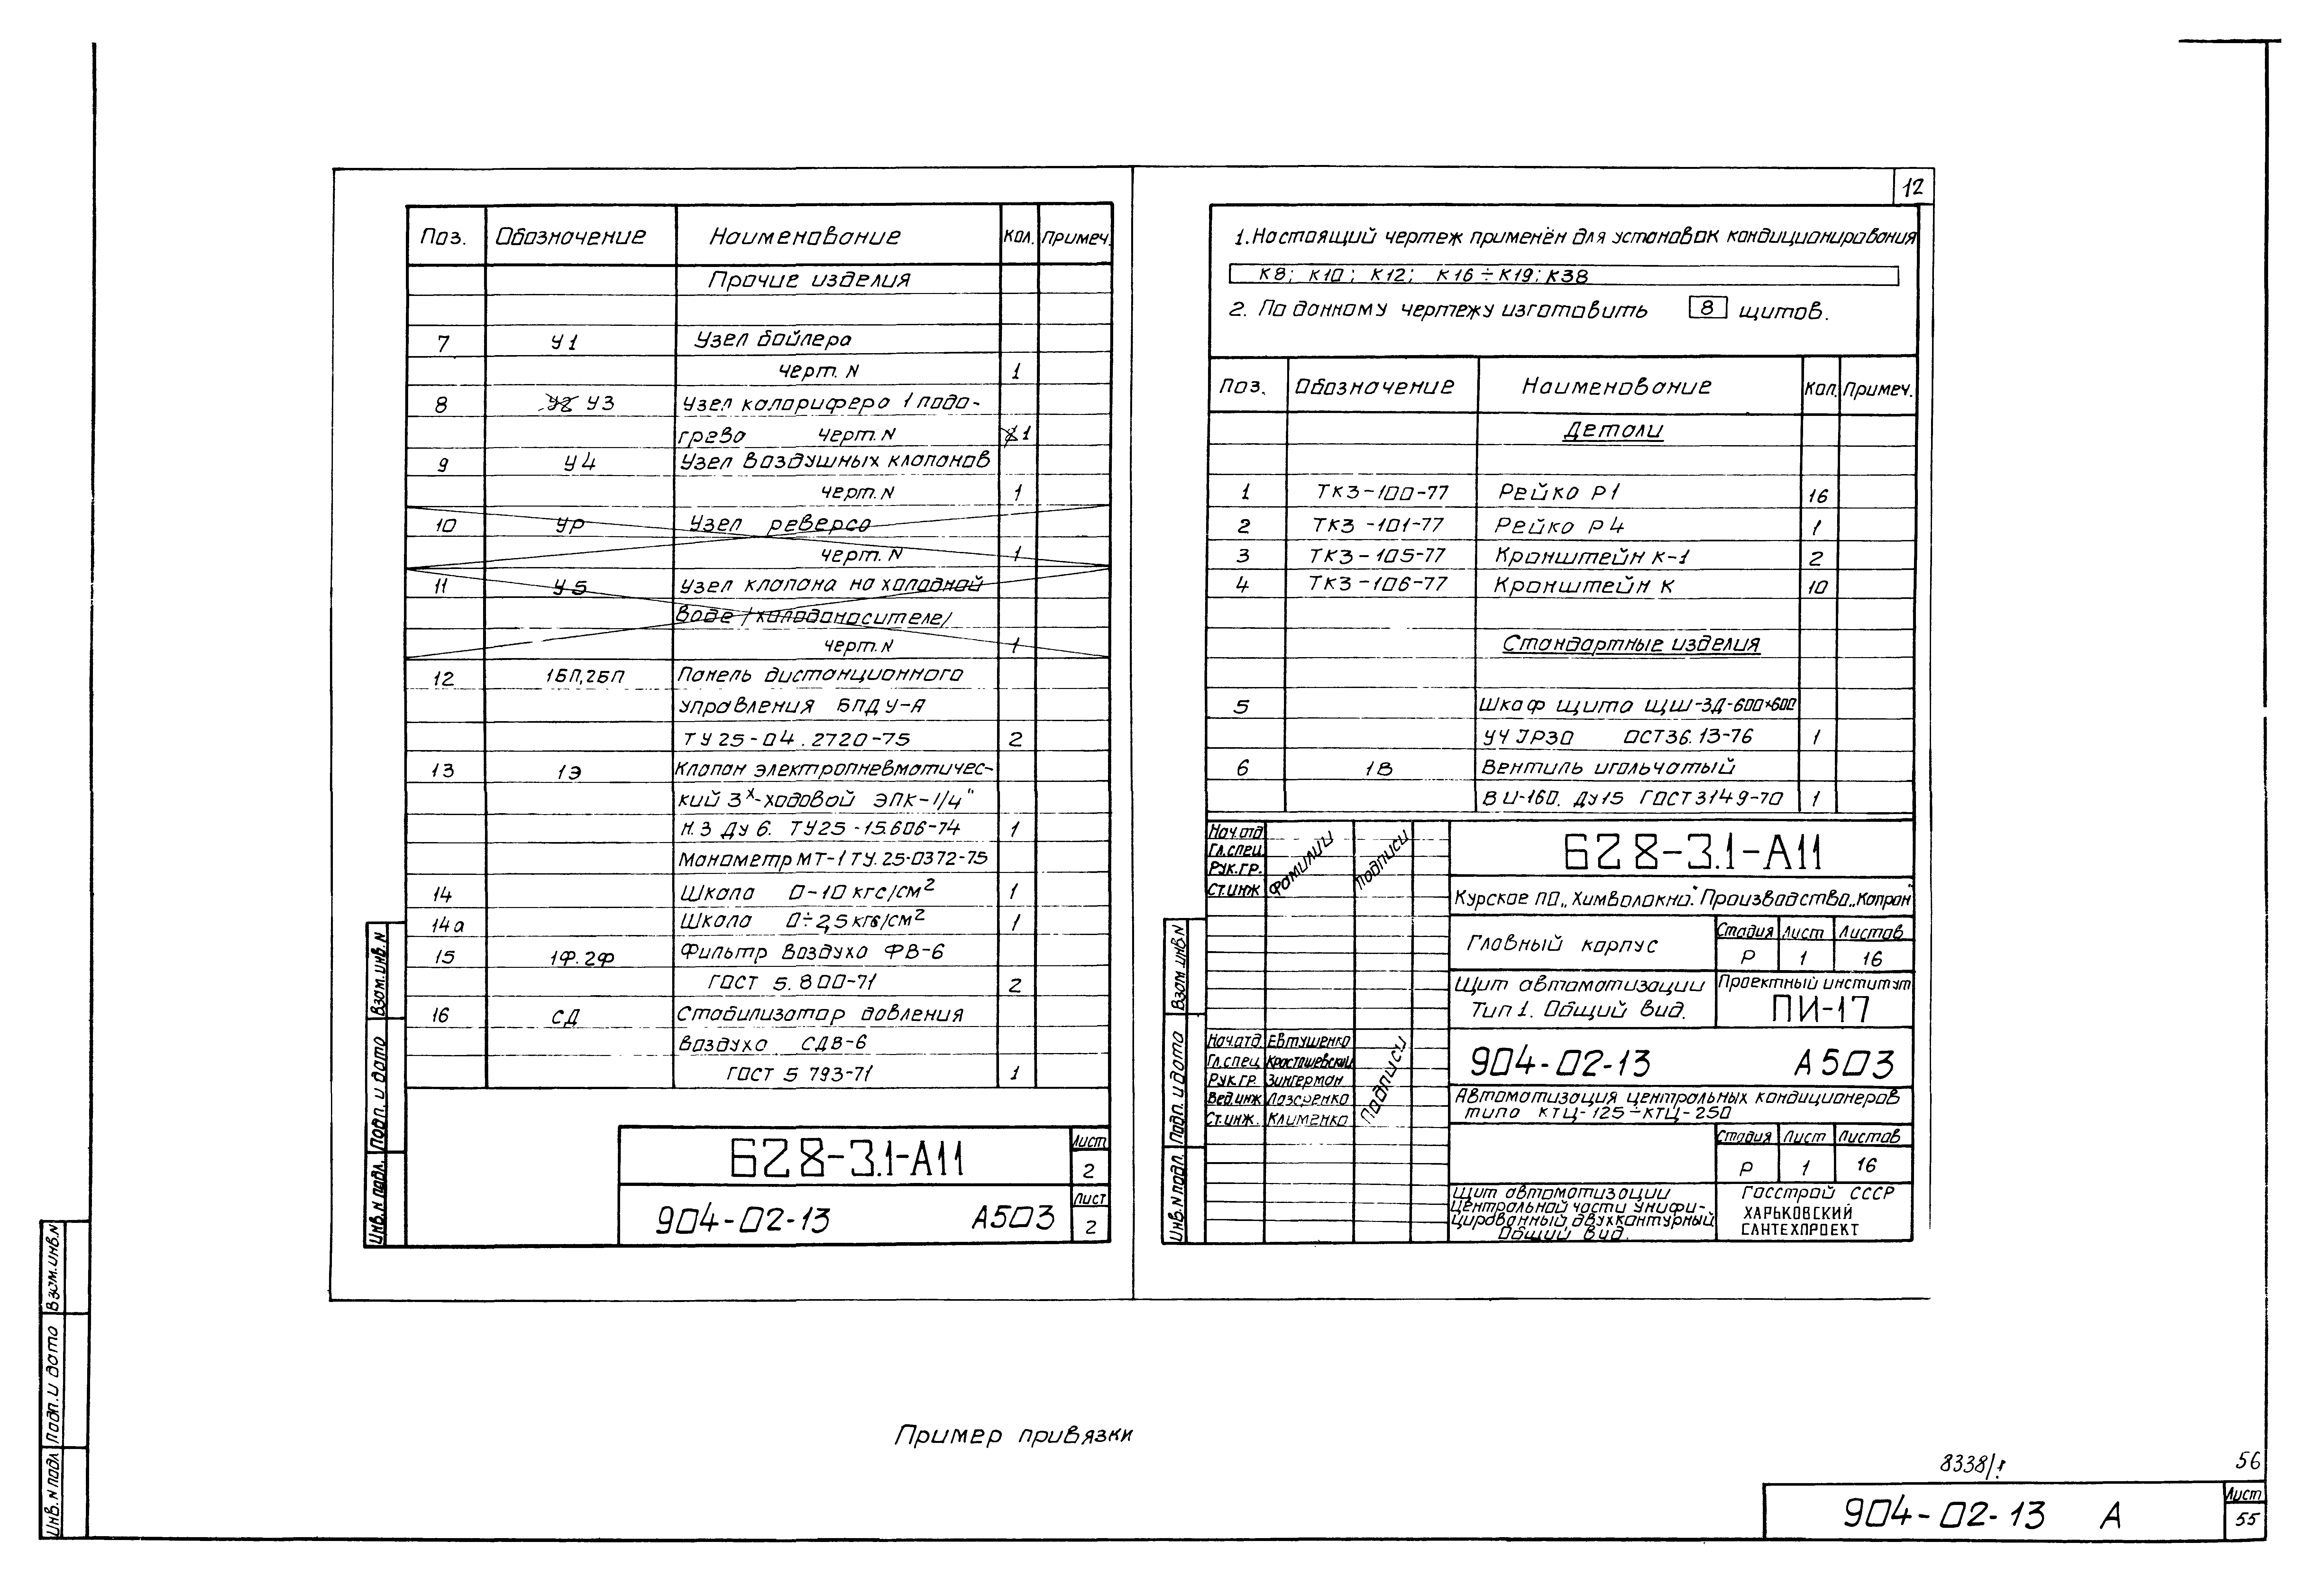 Поз. Обозначение Наименование Кол. Примеч.
Прочие изделия
7 У1 Узел бойлера
черт. N 1
8 У2 У3 Узел калорифера 1 подо-
грева черт. N 1
9 У4 Узел воздушных клапанов
черт. N 1
10 УР Узел реверса
черт. N 1
11 У5 Узел клапана на холодной
воде /холодоносителе/
черт. N 1
12 1БП,2БП Панель дистанционного
управления БПДУ-А
ТУ 25-04.2720-75 2
13 1Э Клапан электропневматичес-
кий 3х-ходовой ЭПК-1/4"
Н.З Ду 6. ТУ25-15.606-74 1
Манометр МТ-1 ТУ.25-0372-75
14 Шкала 0-10 кгс/см2 1
14а Шкала 0÷2,5 кгс/см2 1
15 1Ф.2Ф Фильтр воздуха ФВ-6
ГОСТ 5.800-71 2
16 СД Стабилизатор давления
воздуха СДВ-6
ГОСТ 5 793-71 1
Б28-3.1-А11
Лист
2
904-02-13 А503
Лист
2
Взам.инв.N
Подп. и дата
Инв.N подл.
12
1. Настоящий чертеж применён для установок кондиционирования
К8; К10; К12; К16÷К19; К38
2. По данному чертежу изготовить 8 щитов.
Поз. Обозначение Наименование Кол. Примеч.
Детали
1 ТК3-100-77 Рейка Р1 16
2 ТК3-101-77 Рейка Р4 1
3 ТК3-105-77 Кронштейн К-1 2
4 ТК3-106-77 Кронштейн К 10
Стандартные изделия
5 Шкаф щита ЩШ-ЗД-600×600
УЧ IР30 ОСТ36.13-76 1
6 1В Вентиль игольчатый
ВИ-160. Ду15 ГОСТ 3149-70 1
Нач.отд
Гл.спец.
Рук.гр.
Ст.инж
Фамилии
Подписи
Б28-3.1-А11
Курское ПО „Химволокно". Производство „Капрон"
Главный корпус
Стадия Лист Листов
Р 1 16
Щит автоматизации
Тип 1. Общий вид.
Проектный институт
ПИ-17
Нач.отд. Евтушенко
Гл.спец. Красташевский
Рук.гр. Зингерман
Вед.инж Лазаренко
Ст.инж. Клименко
Подписи
904-02-13 А503
Автоматизация центральных кондиционеров
типа КТЦ-125÷КТЦ-250
Стадия Лист Листов
Р 1 16
Щит автоматизации
центральной части унифи-
цированный двухконтурный
Общий вид.
Госстрой СССР
ХАРЬКОВСКИЙ
САНТЕХПРОЕКТ
Взам инв.N
Подп. и дата
Инв.N подл.
Взам.инв.N
Подп. и дата
Инв.N подл
Пример привязки
56
904-02-13 А
Лист
55